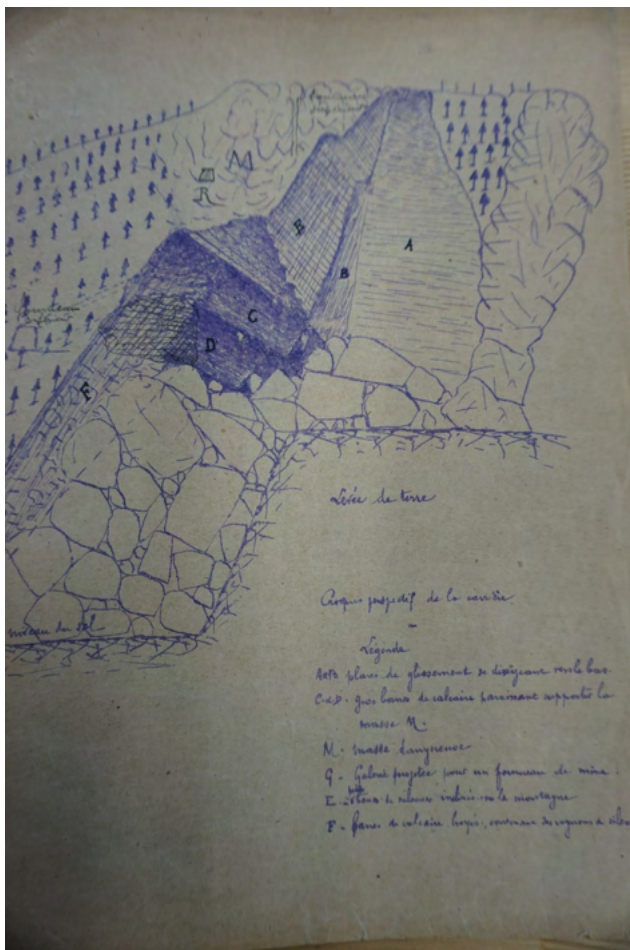 M
R
E
B
A
C
D
F
niveau du sol
Levée de terre
Croquis perspectif de la carrière
Légende
A et B plans de glissement se dirigeant vers le bas
C et D - gros bancs de calcaire paraissant supporter la
masse M.
M - masse dangereuse
G - Galerie projetée pour un fourneau de mine
E - bancs de calcaire inclinés vers la montagne
F - bancs de calcaire broyé, contenant des rognons de